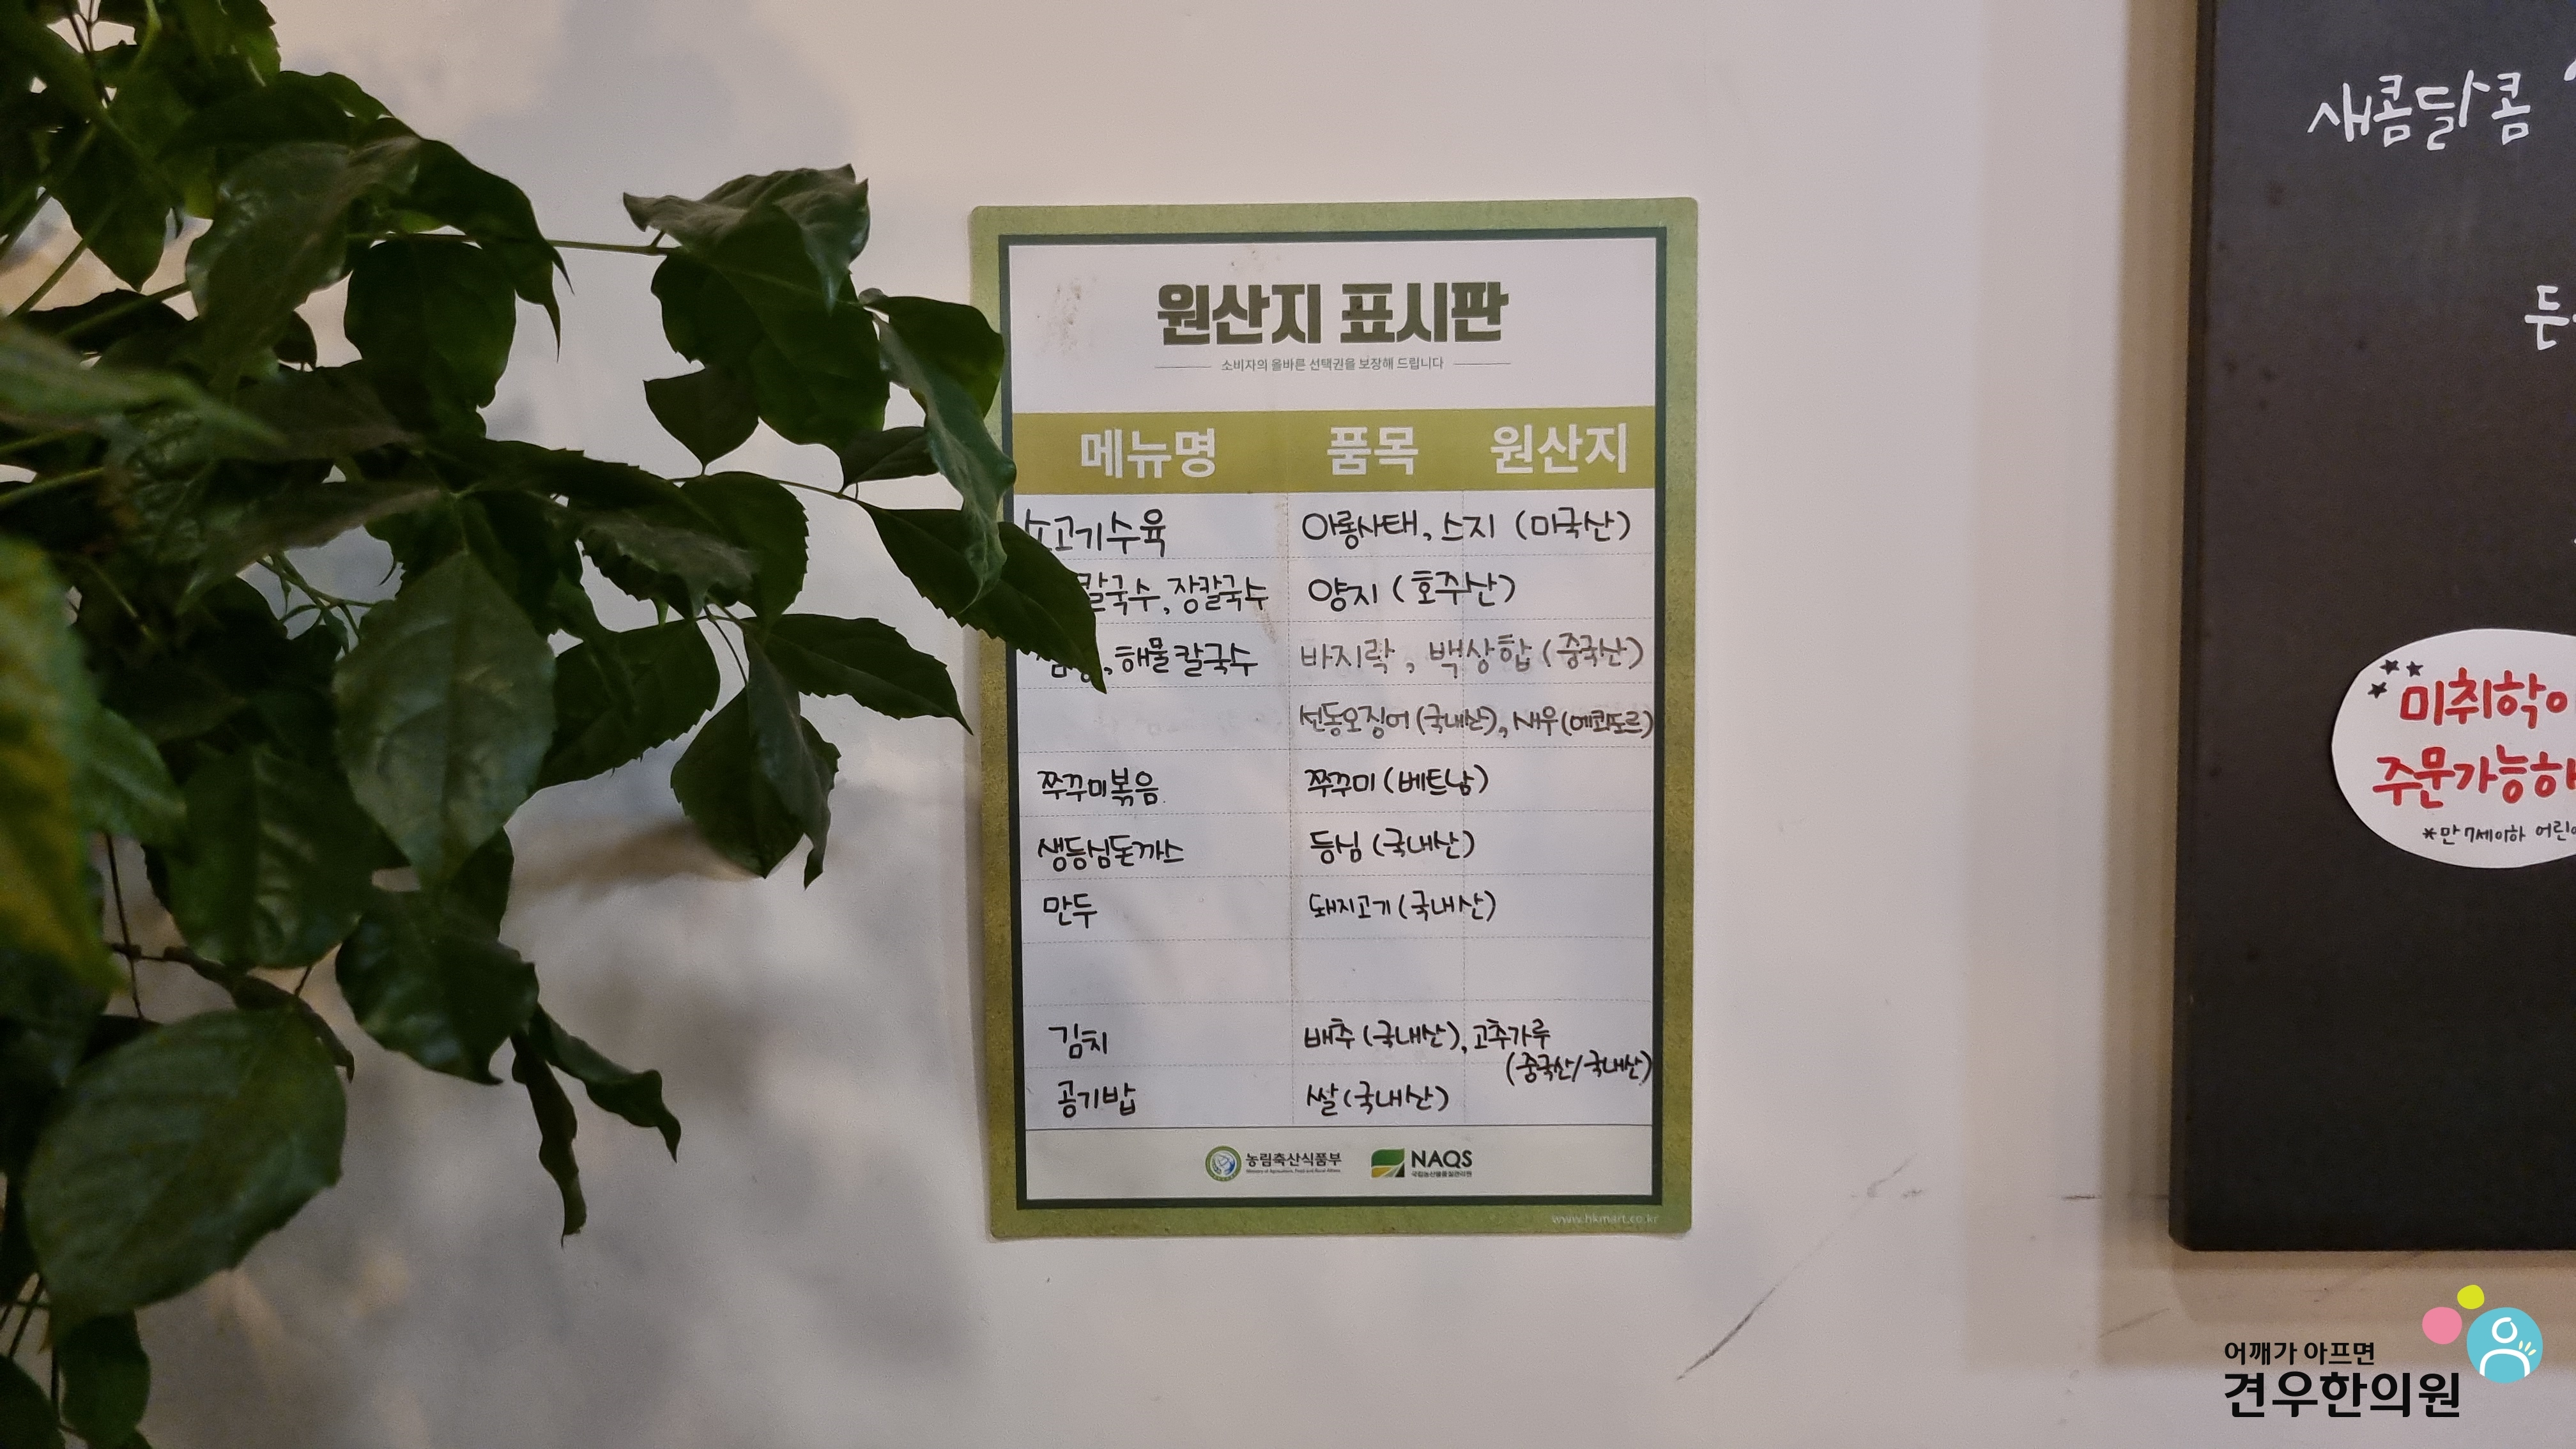 원산지 표시판
소비자의 올바른 선택권을 보장해 드립니다
메뉴명 품목 원산지
소고기수육 아롱사태, 스지 (미국산)
칼국수, 장칼국수 양지 (호주산)
, 해물칼국수 바지락, 백상합 (중국산)
선동오징어 (국내산), 새우 (에콰도르)
쭈꾸미볶음 쭈꾸미 (베트남)
생등심돈까스 등심 (국내산)
만두 돼지고기 (국내산)
김치 배추 (국내산), 고추가루
(중국산/국내산)
공기밥 쌀 (국내산)
농림축산식품부 NAQS
국립농산물품질관리원
www.hkmart.co.kr
새콤달콤
든
미취학아
주문가능하
*만 7세이하 어린이
어깨가 아프면
견우한의원